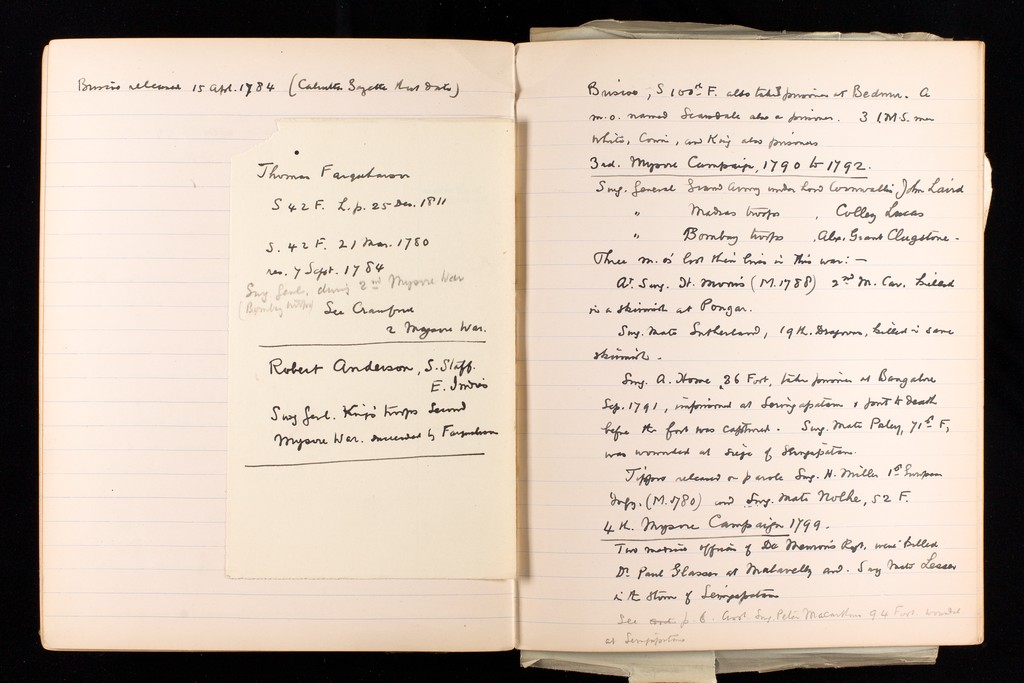 Briscoe released 15 Apl. 1784 (Calcutta Gazette that date)
Thomas Farquharson
S 42 F. L.p. 25 Dec. 1811
S. 42 F. 21 Mar. 1780
res. 7 Sept. 1784
Surg Genl. during 2nd Mysore War
(Bombay troops) See Crawford
2 Mysore War.
Robert Anderson, S. Staff.
E. Indies
Surg Genl. King's troops Second
Mysore War. succeeded by Farquharson
Briscoe, S 100th F. also taken prisoner at Bednur. A
m.o. named Scarsdale also a prisoner. 3 I.M.S. men
White, Cowie, and King also prisoners
3rd. Mysore Campaign, 1790 to 1792.
Surg. General Grand Army under Lord Cornwallis, John Laird
" Madras troops , Colley Lucas
" Bombay troops , Alex. Grant Clugstone.
Three m.os' lost their lives in this war:—
At. Surg. H. Morris (M. 1788) 2nd M. Cav. killed
in a skirmish at Pongar.
Surg. Mate Sutherland, 19th. Dragoons, killed in same
skirmish.
Surg. A. Home, 36 Foot, taken prisoner at Bangalore
Sep. 1791, imprisoned at Seringapatam & put to death
before the fort was captured. Surg. Mate Paley, 71st F,
was wounded at siege of Seringapatam.
Tippoo released on parole Surg. H. Miller 1st European
Infy. (M. 1780) and Surg. Mate Nolke, 52 F.
4 th. Mysore Campaign 1799.
Two medical officers of De Meuron's Regt. were killed
Dr. Paul Glasser at Malavelly and Surg Mate Lesser
in the storm of Seringapatam
See p. 6. Asst. Surg. Peter Macarthur 94 Foot wounded
at Seringapatam